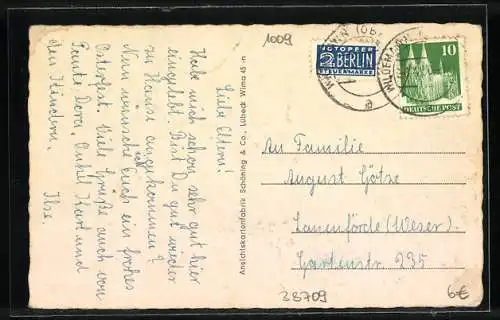 Liebe Eltern!
Habe mich schon sehr gut hier
eingelebt. Bist Du gut wieder
zu Hause angekommen?
Nun wünsche ich Euch ein frohes
Osterfest. Viele Grüße auch von
Tante Dora, Onkel Kurt und
den Kindern.
Ilse.
Ansichtskartenfabrik Schöning & Co., Lübeck Wilma 45 n
1009
NOTOPFER
2 BERLIN
STEUERMARKE
WILDEMANN
10
DEUTSCHE POST
An Familie
August Götze
Lauenförde (Weser)
Gartenstr 235
38709
6€